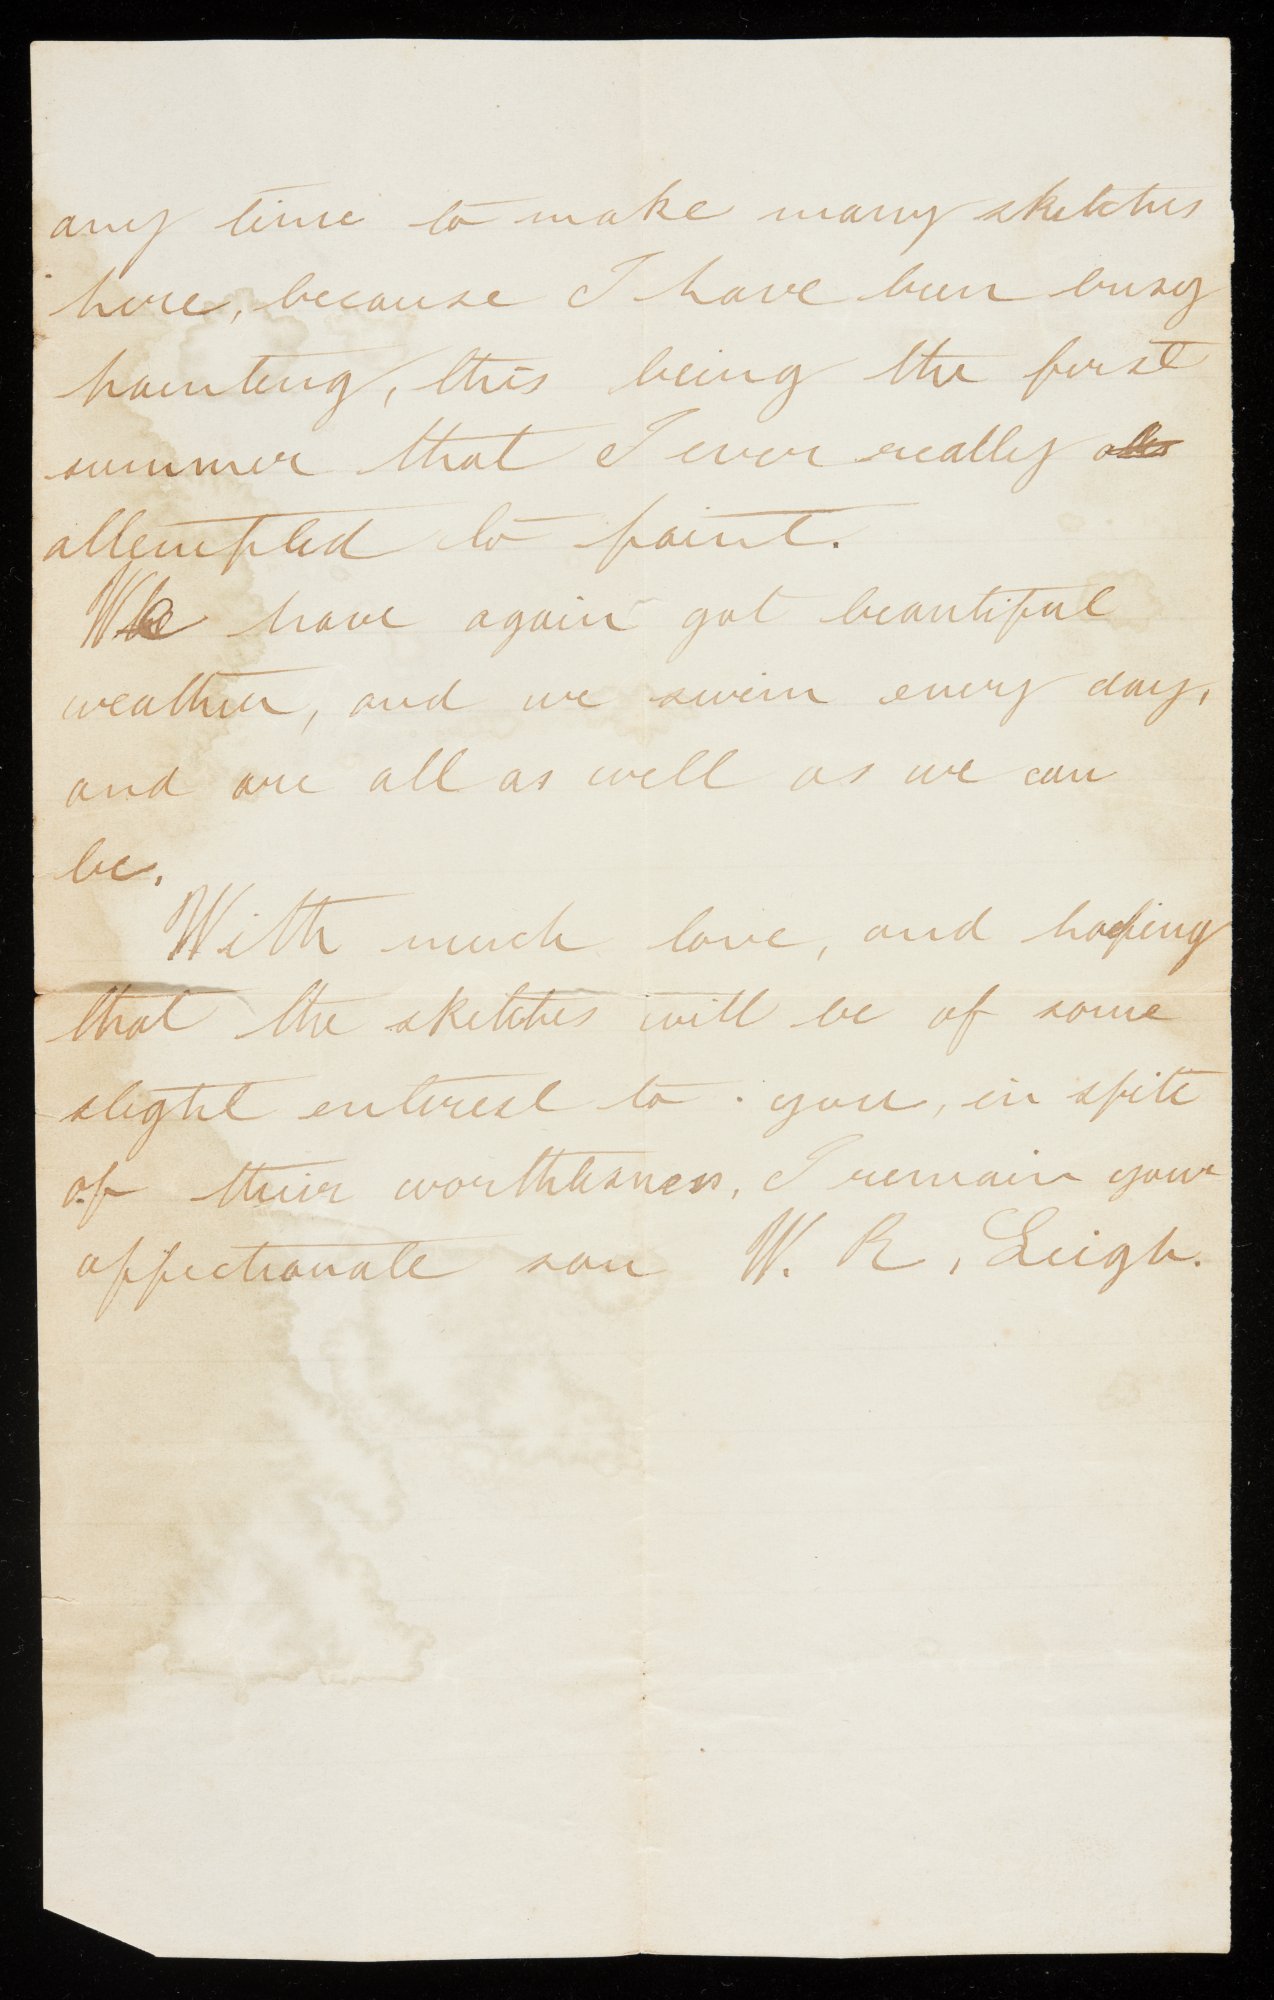 any time to make many sketches
here, because I have been busy
painting, this being the first
summer that I ever really
attempted to paint.
We have again got beautiful
weather, and we swim every day,
and are all as well as we can
be.
With much love, and hoping
that the sketches will be of some
slight enterest to you, in spite
of their worthlesness, I remain your
affectionate son W. R. Leigh.